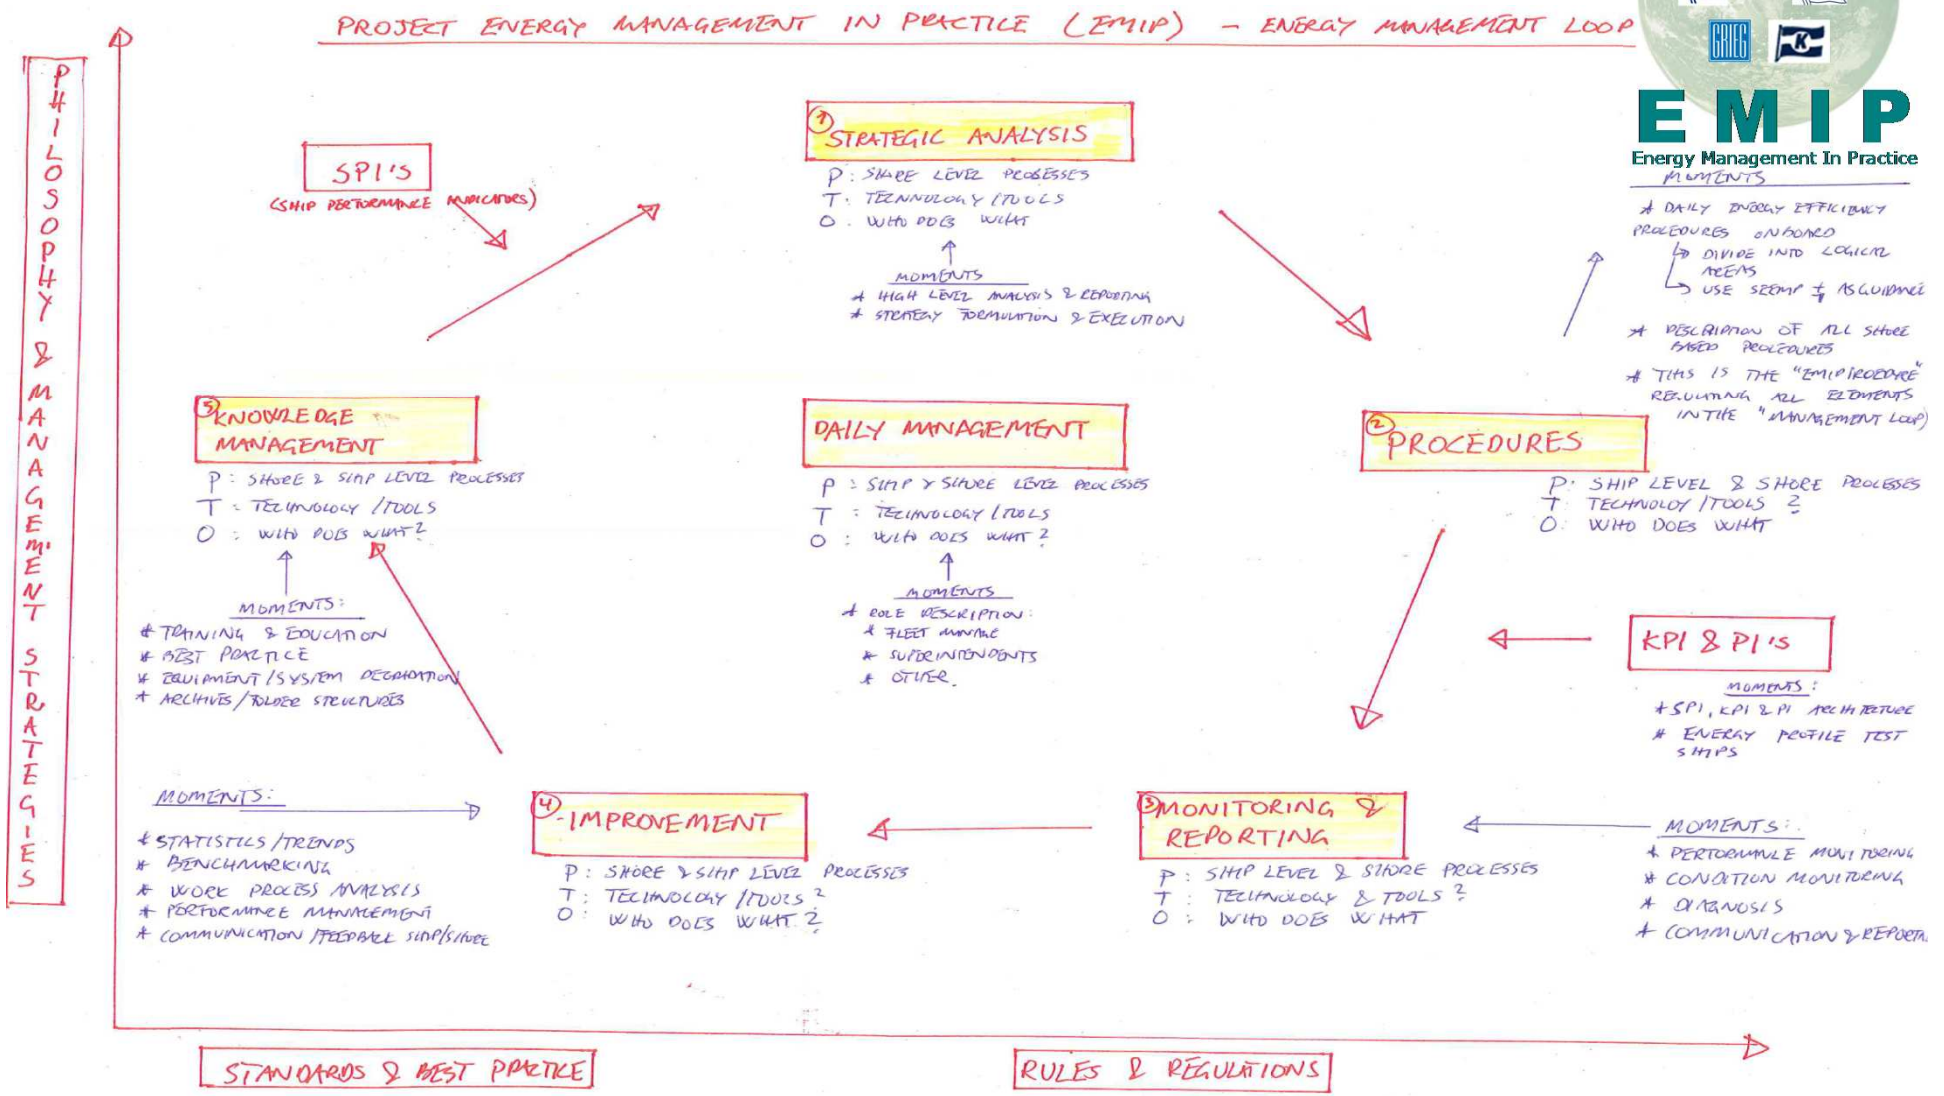 PROJECT ENERGY MANAGEMENT IN PRACTICE (EMIP) - ENERGY MANAGEMENT LOOP
GRIEG
K
EMIP
Energy Management In Practice
PHILOSOPHY & MANAGEMENT STRATEGIES
SPI'S
(SHIP PERFORMANCE INDICATORS)
1
STRATEGIC ANALYSIS
P: SHORE LEVEL PROCESSES
T: TECHNOLOGY /TOOLS
O: WHO DOES WHAT
MOMENTS
* HIGH LEVEL ANALYSIS & REPORTING
* STRATEGY FORMULATION & EXECUTION
MOMENTS
* DAILY ENERGY EFFICIENCY
PROCEDURES ONBOARD
DIVIDE INTO LOGICAL
AREAS
USE SEEMP AS GUIDANCE
* DESCRIPTION OF ALL SHORE
BASED PROCEDURES
* THIS IS THE
REGULATING ALL ELEMENTS
IN THE "MANAGEMENT LOOP)
5 KNOWLEDGE
MANAGEMENT
P: SHORE & SHIP LEVEL PROCESSES
T: TECHNOLOGY /TOOLS
O: WHO DOES WHAT?
MOMENTS:
* TRAINING & EDUCATION
* BEST PRACTICE
* EQUIPMENT/SYSTEM DEGRADATION
* ARCHIVES/FOLDER STRUCTURES
DAILY MANAGEMENT
P: SHIP & SHORE LEVEL PROCESSES
T: TECHNOLOGY /TOOLS
O: WHO DOES WHAT?
MOMENTS
* ROLE DESCRIPTION:
* FLEET MANAGE
* SUPERINTENDENTS
* OTHER.
2
PROCEDURES
P: SHIP LEVEL & SHORE PROCESSES
T: TECHNOLOY /TOOLS ?
O: WHO DOES WHAT
KPI & PI'S
MOMENTS:
* SPI, KPI & PI ARCHITECTURE
* ENERGY PROFILE TEST
SHIPS
MOMENTS:
* STATISTICS /TRENDS
* BENCHMARKING
* WORK PROCESS ANALYSIS
* PERFORMANCE MANAGEMENT
* COMMUNICATION /FEEDBACK SHIP/SHORE
4
IMPROVEMENT
P: SHORE & SHIP LEVEL PROCESSES
T: TECHNOLOGY /TOOLS ?
O: WHO DOES WHAT ?
3 MONITORING &
REPORTING
P: SHIP LEVEL & SHORE PROCESSES
T: TECHNOLOGY & TOOLS ?
O: WHO DOES WHAT
MOMENTS:
* PERFORMANCE MONITORING
* CONDITION MONITORING
* DIAGNOSIS
* COMMUNICATION &
STANDARDS & BEST PRACTICE
RULES & REGULATIONS